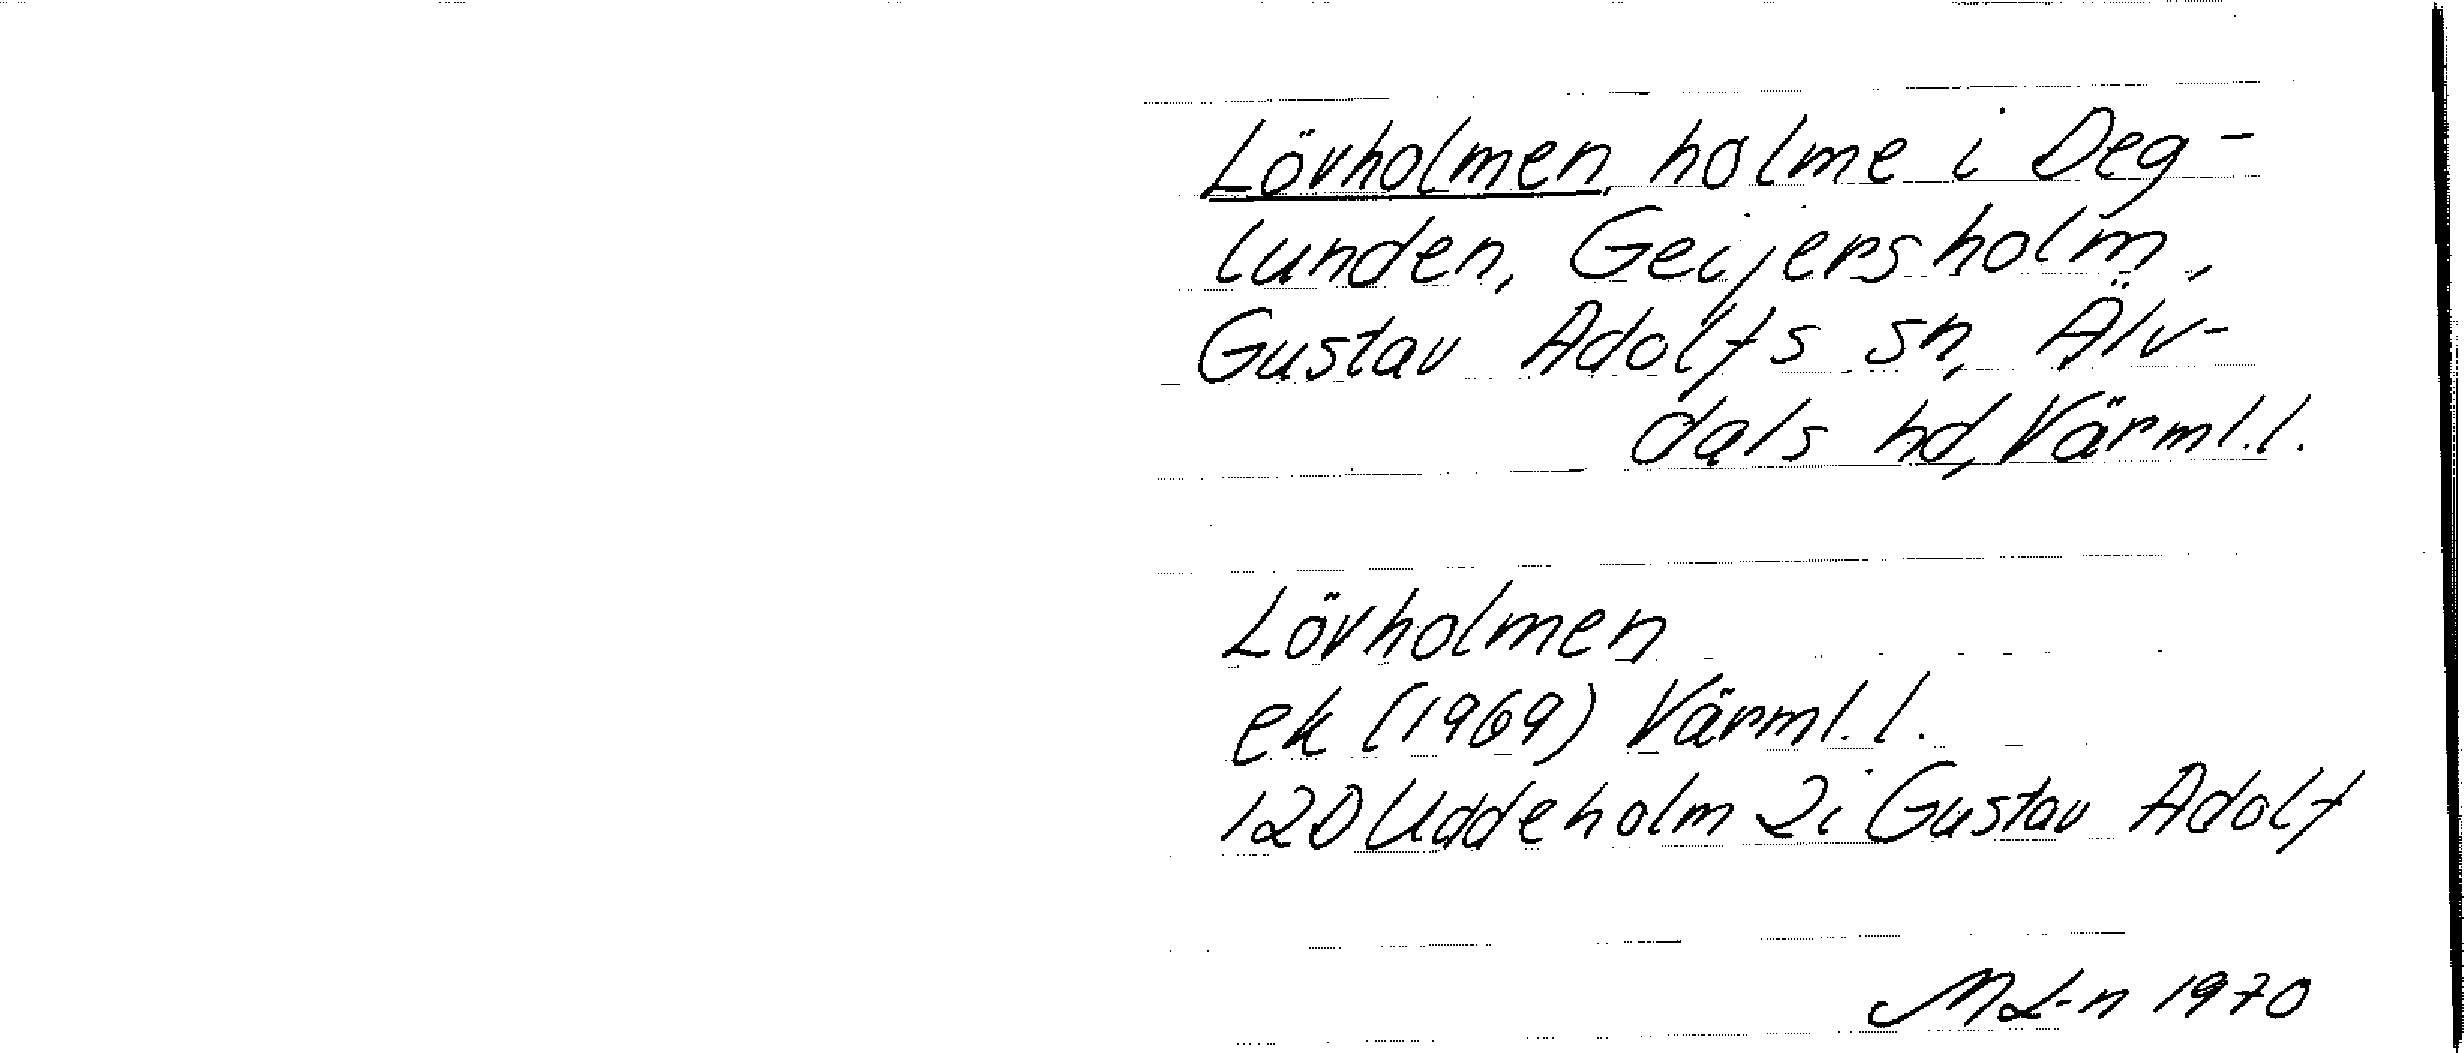 Lövholmen, holme i Deg-
lunden, Geijersholm,
Gustav Adolfs sn, Älv-
dals hd, Värml. l.
Lövholmen
ek (1969) Värml. l.
12D Uddeholm 2i Gustav Adolf
ML-n 1970